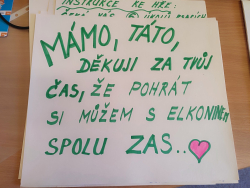 INSTRUKCE KE HŘE:
MÁMO, TÁTO,
DĚKUJI ZA TVŮJ
ČAS, ŽE POHRÁT
SI MŮŽEM S ELKONINEM
SPOLU ZAS..